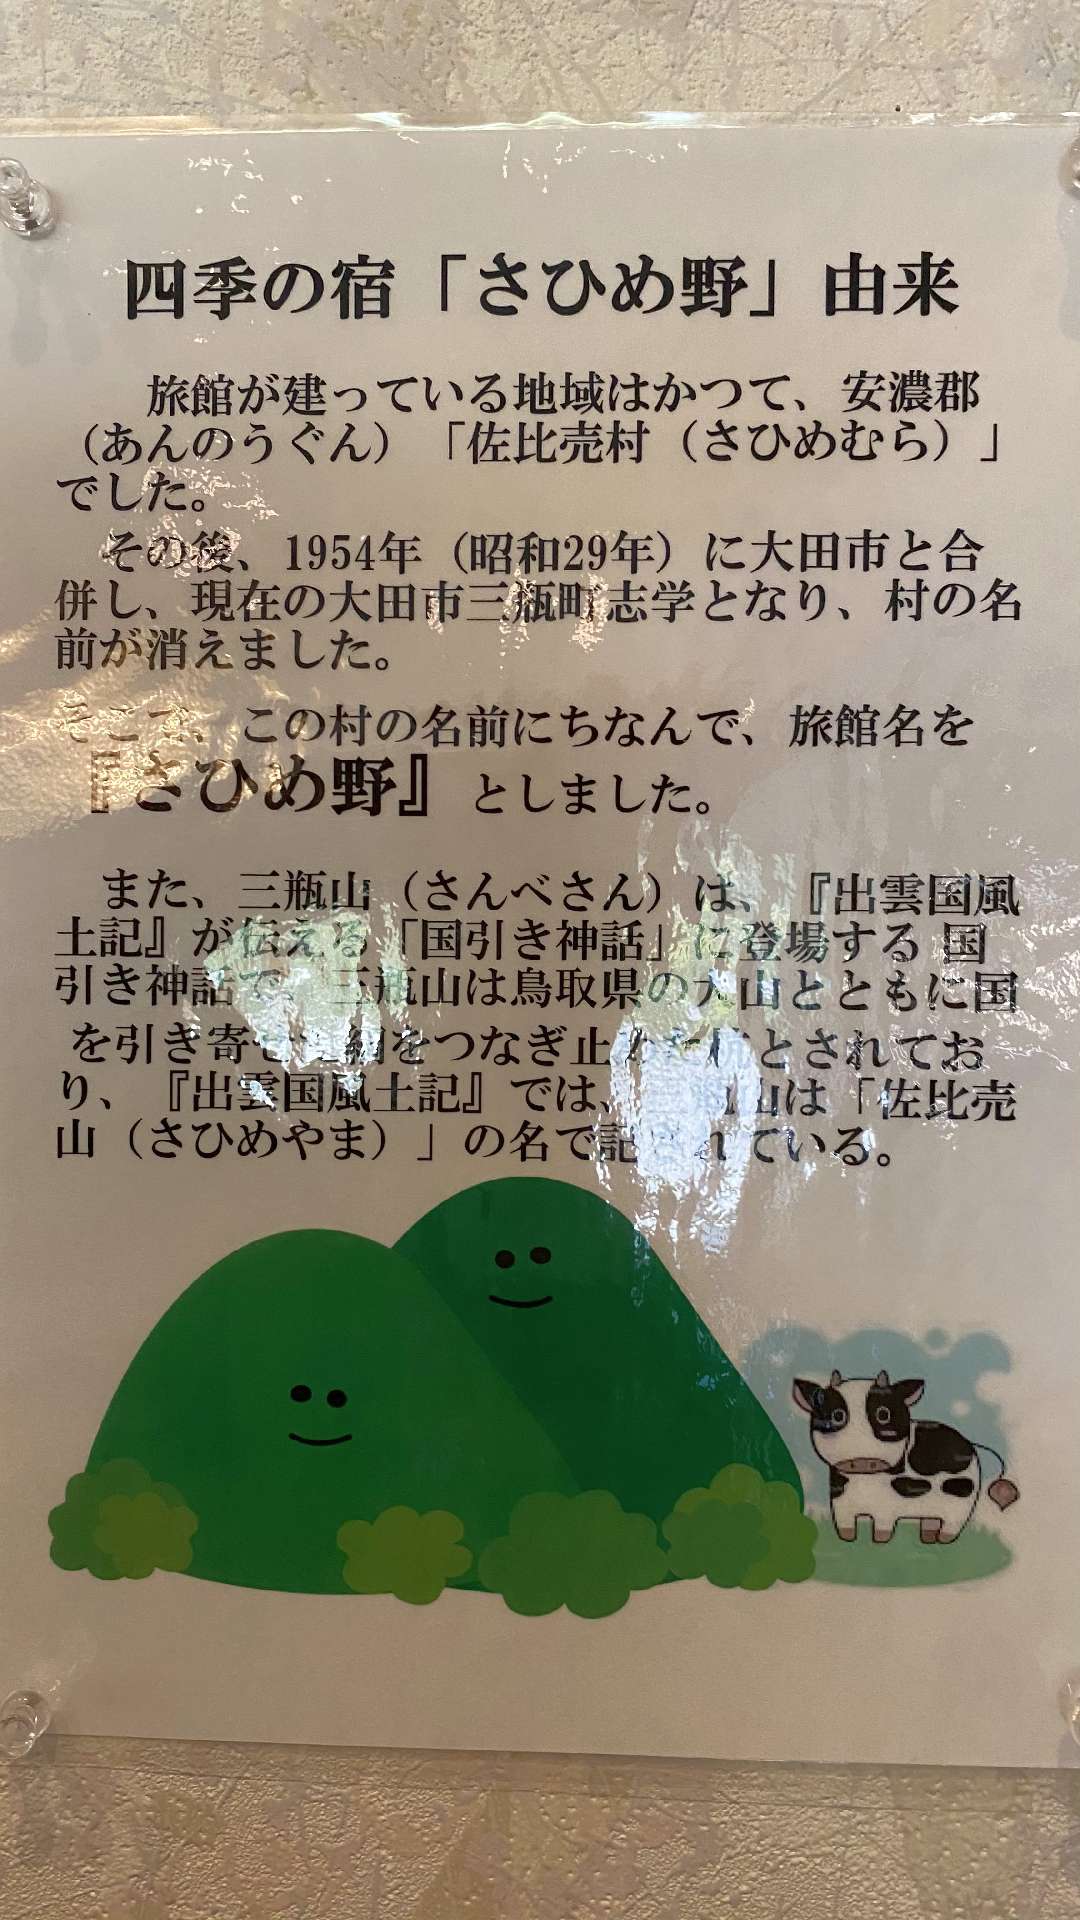 四季の宿「さひめ野」由来
旅館が建っている地域はかつて、安濃郡
（あんのうぐん）「佐比売村（さひめむら）」
でした。
その後、1954年（昭和29年）に大田市と合
併し、現在の大田市三瓶町志学となり、村の名
前が消えました。
そこで、この村の名前にちなんで、旅館名を
『さひめ野』としました。
また、三瓶山（さんべさん）は、『出雲国風
土記』が伝える「国引き神話」に登場する 国
引き神話で、三瓶山は鳥取県の大山とともに国
を引き寄せ 綱をつなぎ止 とされてお
り、『出雲国風土記』では、 山は「佐比売
山（さひめやま）」の名で記 れている。